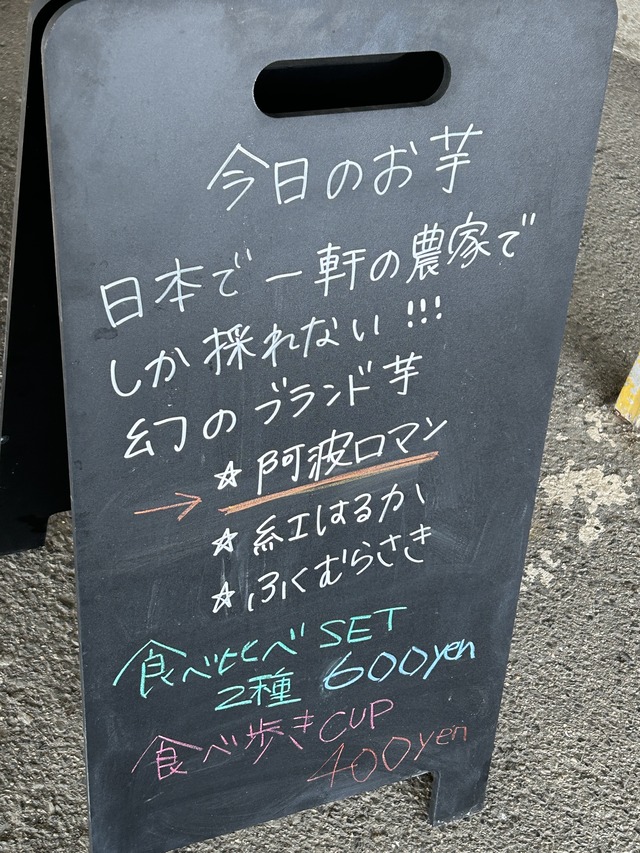 今日のお芋
日本で一軒の農家で
しか採れない!!!
幻のブランド芋
→ ☆阿波ロマン
☆紅はるか
☆ふくむらさき
食べ比べSET
2種 600yen
食べ歩きCUP
400yen